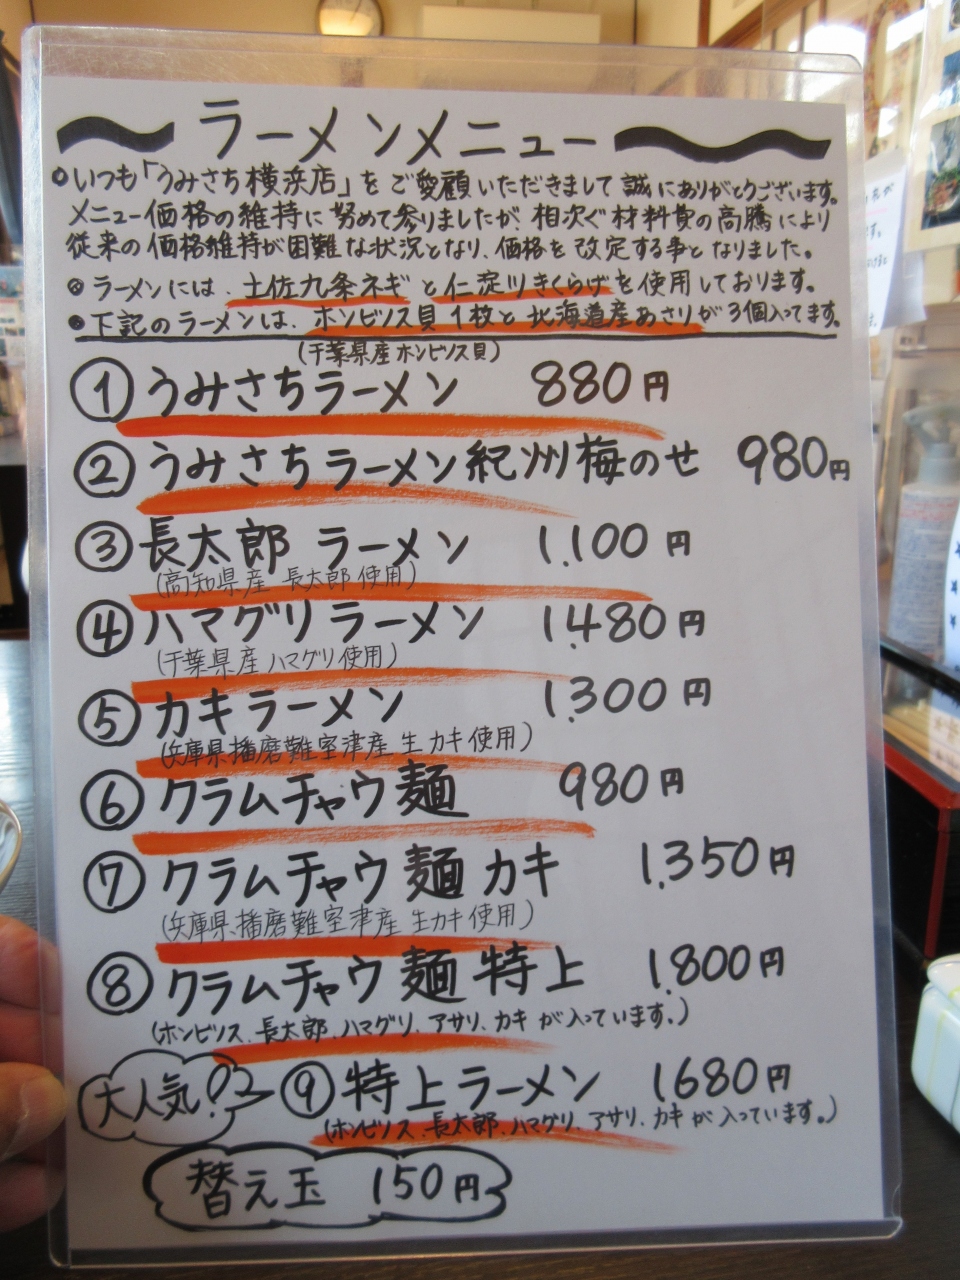 ラーメンメニュー
いつも「うみさち横浜店」をご愛顧いただきまして誠にありがとうございます。
メニュー価格の維持に努めて参りましたが、相次ぐ材料費の高騰により
従来の価格維持が困難な状況となり、価格を改定する事となりました。
◎ラーメンには、土佐九条ネギと仁淀川きくらげを使用しております。
●下記のラーメンは、ホンビノス貝1枚と北海道産あさりが3個入ってます。
(千葉県産ホンビノス貝)
①うみさちラーメン 880円
②うみさちラーメン紀州梅のせ 980円
③長太郎 ラーメン 1,100円
(高知県産 長太郎使用)
④ハマグリラーメン 1,480円
(千葉県産 ハマグリ使用)
⑤カキラーメン 1,300円
(兵庫県播磨難室津産 生カキ使用)
⑥クラムチャウ麺 980円
⑦クラムチャウ麺カキ 1,350円
(兵庫県播磨難室津産 生カキ使用)
⑧クラムチャウ麺 特上 1,800円
(ホンビノス、長太郎、ハマグリ、アサリ、カキが入っています。)
大人気!? ⑨特上ラーメン 1680円
(ホンビノス、長太郎、ハマグリ、アサリ、カキが入っています。)
替え玉 150円